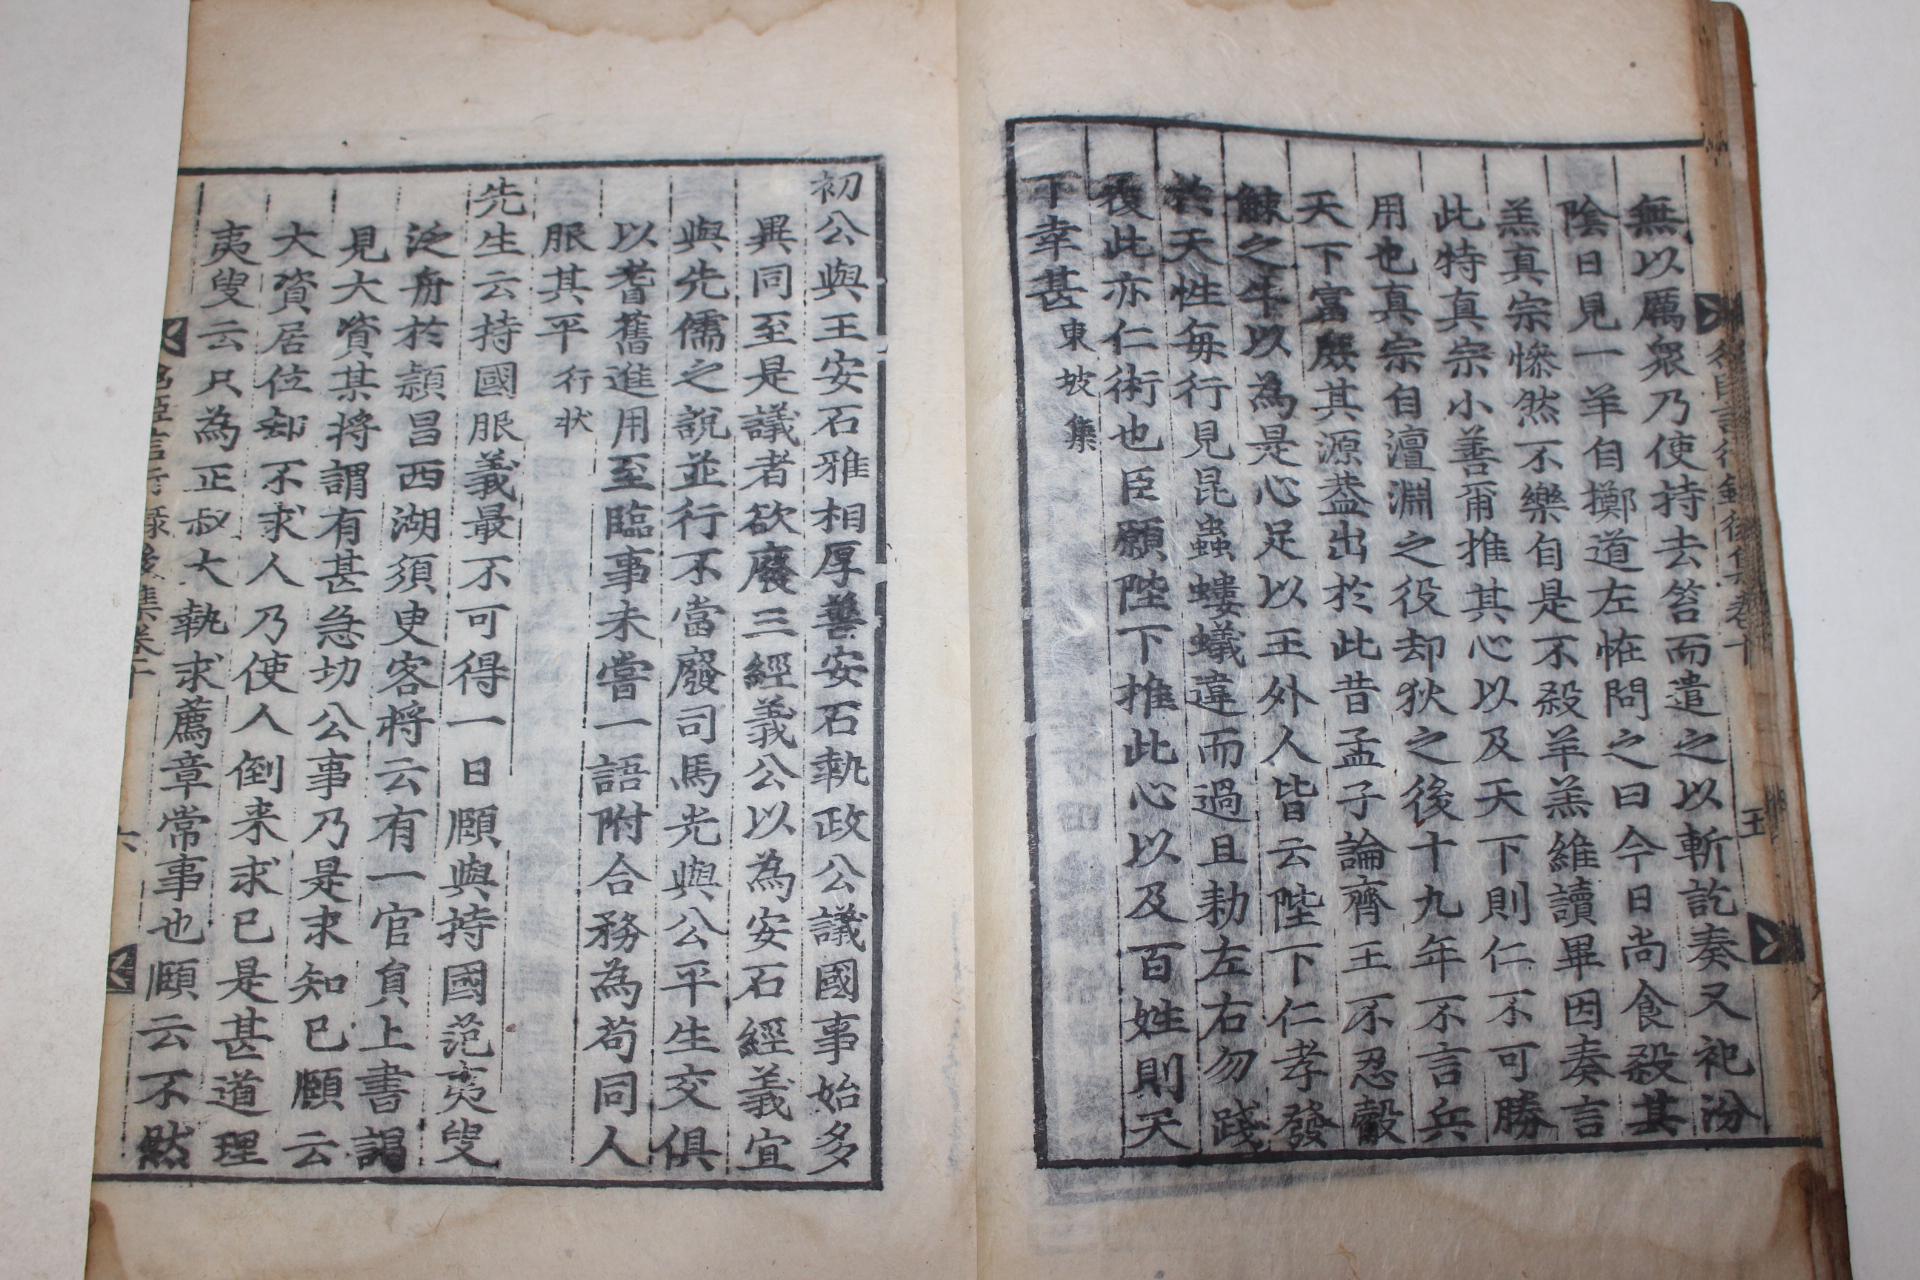 無以厲衆乃使持去笞而遣之以斬訖奏又祀汾
陰日見一羊自擲道左恠問之曰今日尚食殺其
羔真宗慘然不樂自是不殺羊羔維讀畢因奏言
此特真宗小善甭推其心以及天下則仁不可勝
用也真宗自澶淵之役却狄之後十九年不言兵
天下富其源盖出於此昔孟子論齊王不忍觳
觫之牛以為是心足以王外人皆云陛下仁孝發
扵天性每行見昆蟲螻蟻違而過且勑左右勿踐
履此亦仁術也臣願陛下推此心以及百姓則天
下幸甚 東坡集
初公與王安石雅相厚善安石執政公議國事始多
異同至是議者欲廢三經義公以為安石經義宜
與先儒之說並行不當廢司馬光與公平生交俱
以耆舊進用至臨事未嘗一語附合務為苟同人
服其平 行狀
先生云持國服義最不可得一日頤與持國范夷叟
泛舟於潁昌西湖須臾客将云有一官負上書謁
見大資某将謂有甚急切公事乃是求知己頤云
大資居位却不求人乃使人倒来求己是甚道理
夷叟云只為正叔大執求薦章常事也頤云不然